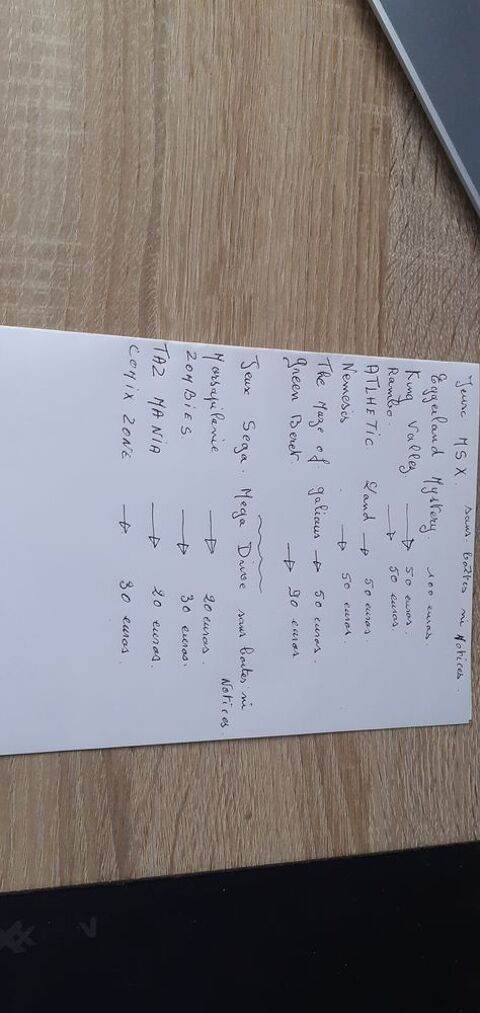 Jeux MSX. sans boîtes ni Notices.
Eggerland Mystery. 100 euros.
King Valley → 50 euros.
Rambo. → 50 euros.
ATLHETIC Land → 50 euros.
Nemesis. → 50 euros.
The Maze of galious → 50 euros.
green Beret. → 90 euros
Jeux Sega. Mega Drive sans boites ni
Notices.
Marsupilanie → 20 euros.
ZOMBIES → 30 euros.
TAZ MANIA → 20 euros.
COMIX ZONE → 30 euros.